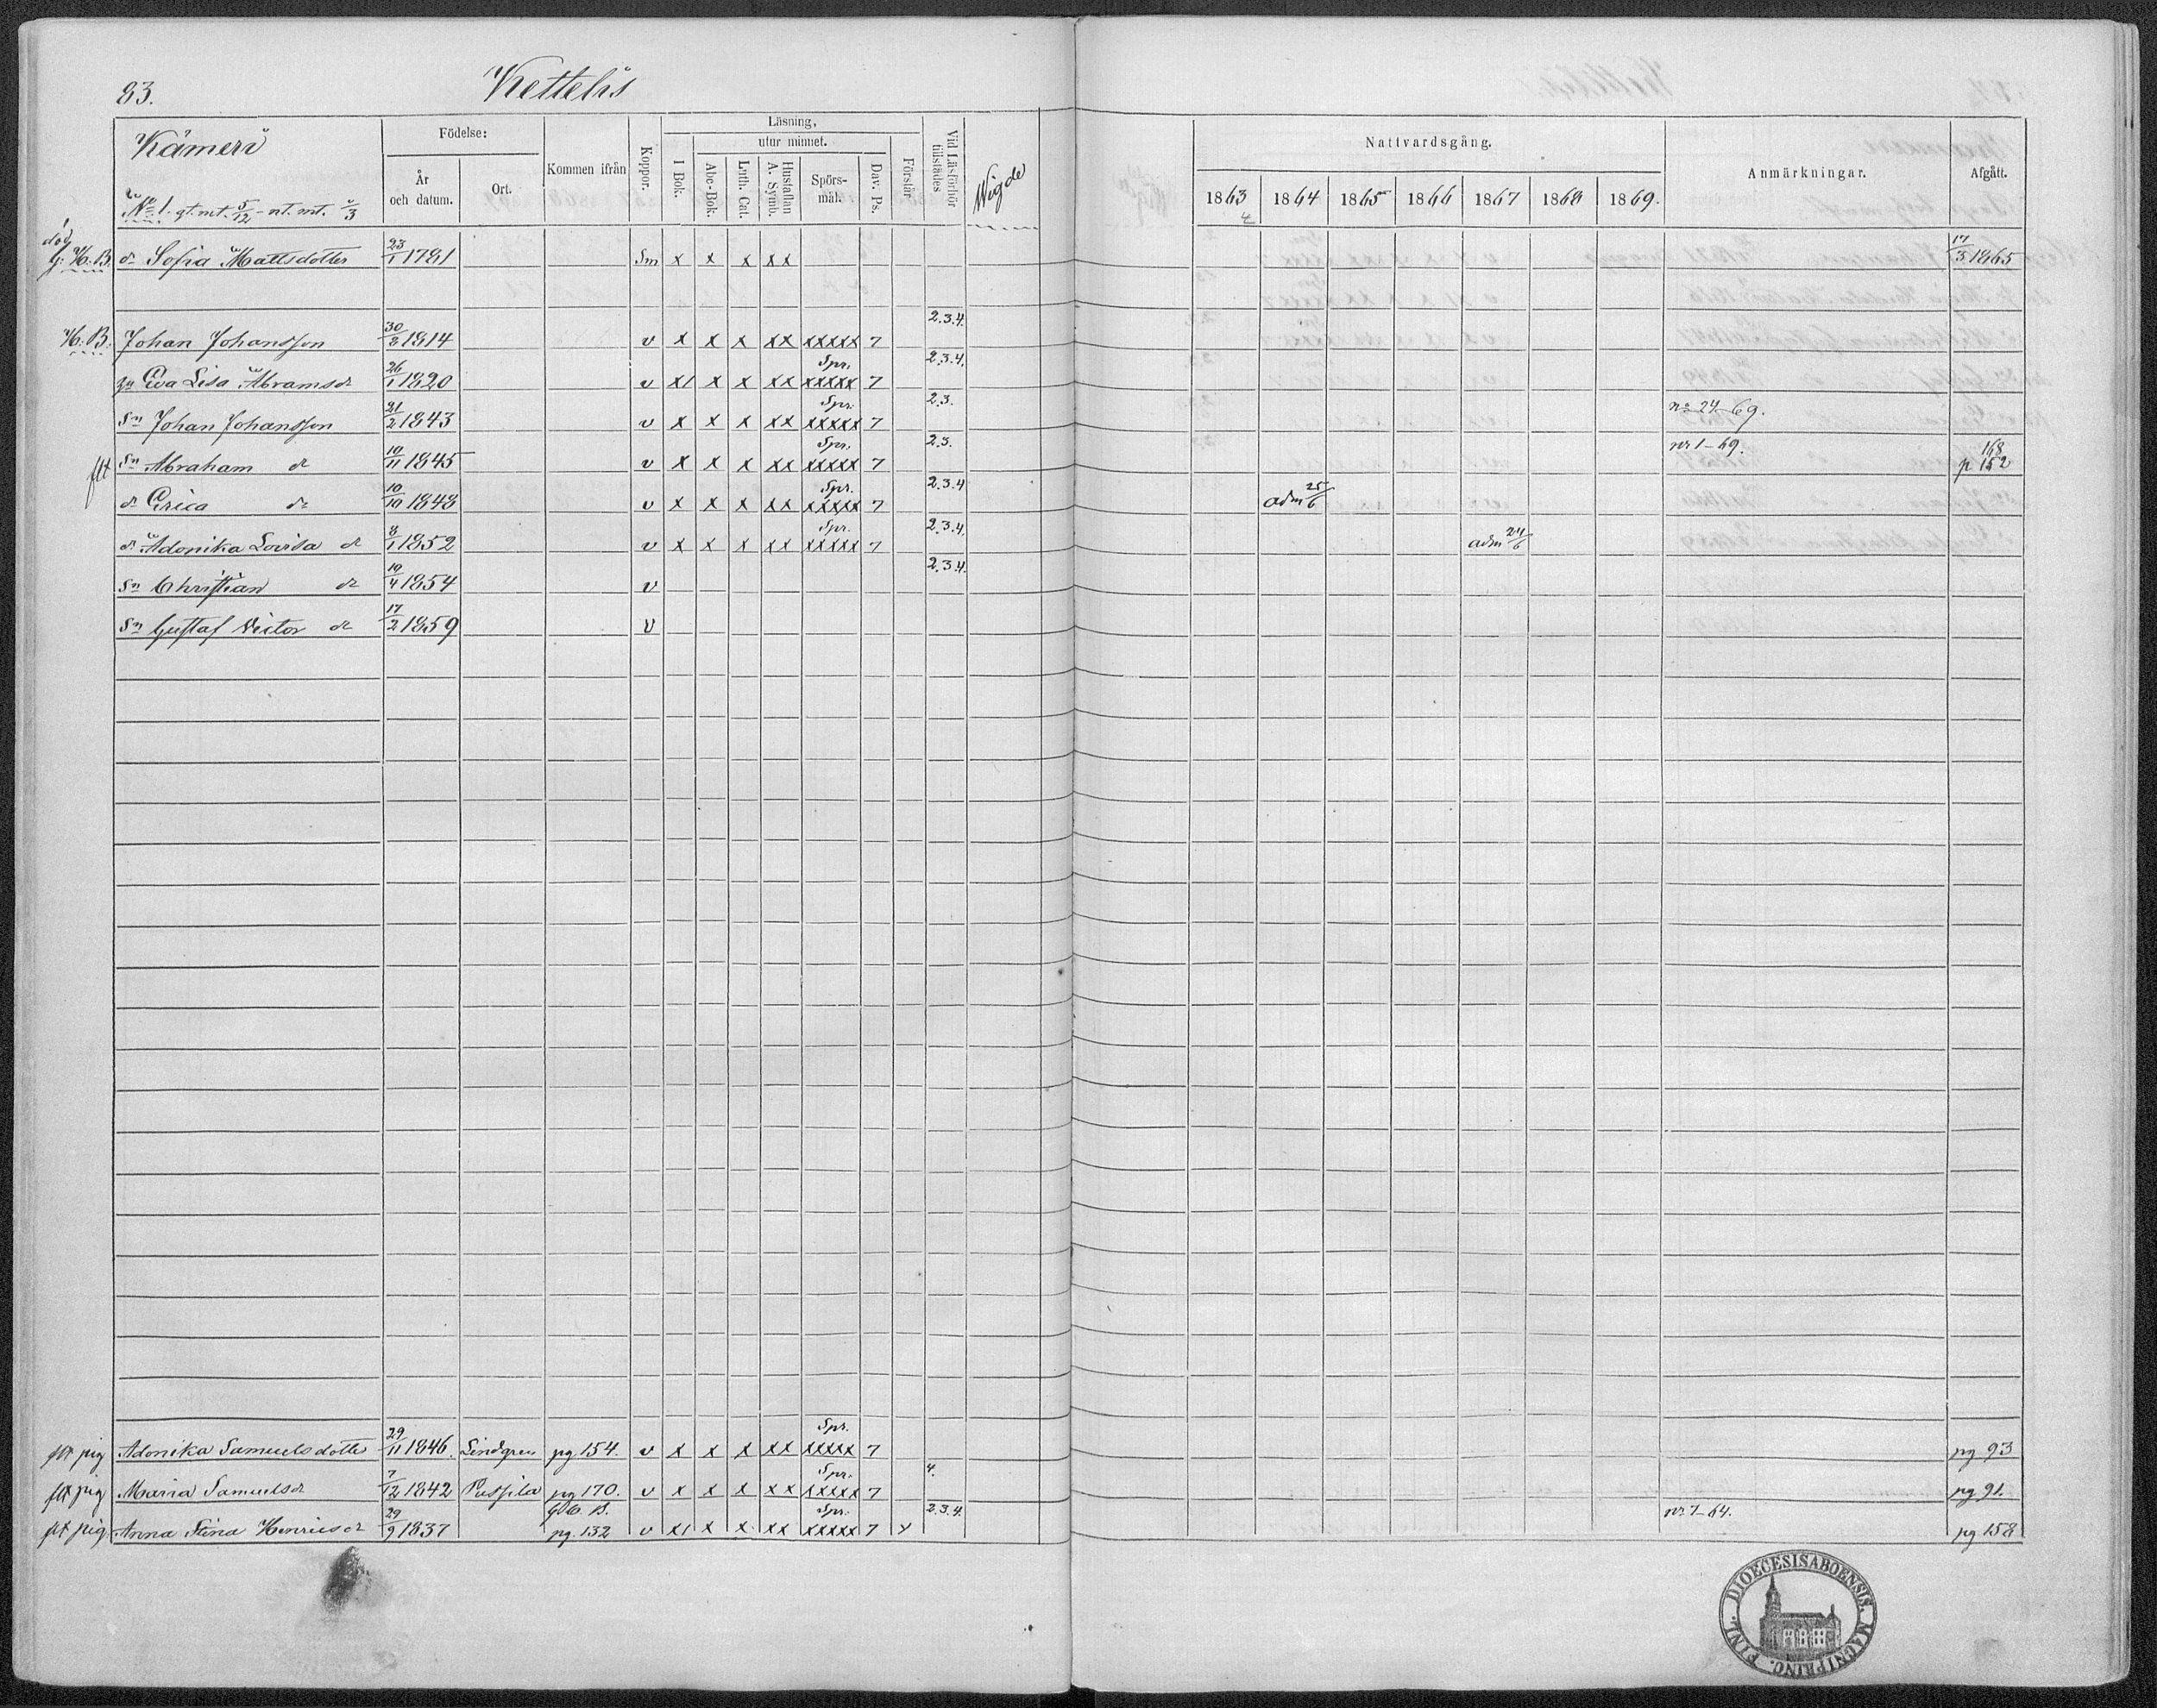 83.
Kettelis
Kämeri
Nº 1. gt. mt. 5/12 - nt. mt. 2/3
Födelse:
År och datum.
Ort.
Kommen ifrån
Koppor.
Läsning,
utur minnet.
I Bok.
Abc-Bok.
Luth. Cat.
Hustaflan A. Symb.
Spörs-mål.
Dav. Ps.
Förstår.
Vid Läsförhör tillstädes
Wigde
Nattvardsgång.
1863 1864 1865 1866 1867 1868 1869.
Anmärkningar.
Afgått.
död
G. H. B. dr Sofia Mattsdotter 23/1 1781 Sm x x x xx 17/3 1865
H. B. Johan Johansson 30/2 1814 v x x x xx xxxxx 7 2.3.4.
hu Eva Lisa Abramsdr 26/1 1820 v x1 x x xx Spr. xxxxx 7 2.3.4.
Sn Johan Johansson 21/2 1843 v x x x xx Spr. xxxxx 7 2.3. nº 24-69.
flt Sn Abraham dº 19/11 1845 v x x x xx Spr. xxxxx 7 2.3. nr 1-69. 168 p. 152
dr Erica dº 10/10 1848 v x x x xx Spr. xxxxx 7 2.3.4 adm 25/6
dr Adonika Lovisa dº 8/1 1852 v x x x xx Spr. xxxxx 7 2.3.4. adm 24/6
Sn Christian dº 19/4 1854 v 2.3.4.
Sn Gustaf Victor dº 17/2 1859 v
flt pig Adonika Samuelsdotter 29/11 1846. Lindgren pg 154. v x x x xx Spr. xxxxx 7 pg 93
flt pig Maria Samuelsdr 7/12 1842 Pussila pg 170. v x x x xx Spr. xxxxx 7 4. pg 91.
flt pig Anna Stina Henricsdr 29/9 1837 pg. 132 v x1 x x xx Spr. xxxxx 7 x 2.3.4. nr 7-64. pg 158
DIOECESIS ABOENSIS. MAGNI PRINC. FINL.